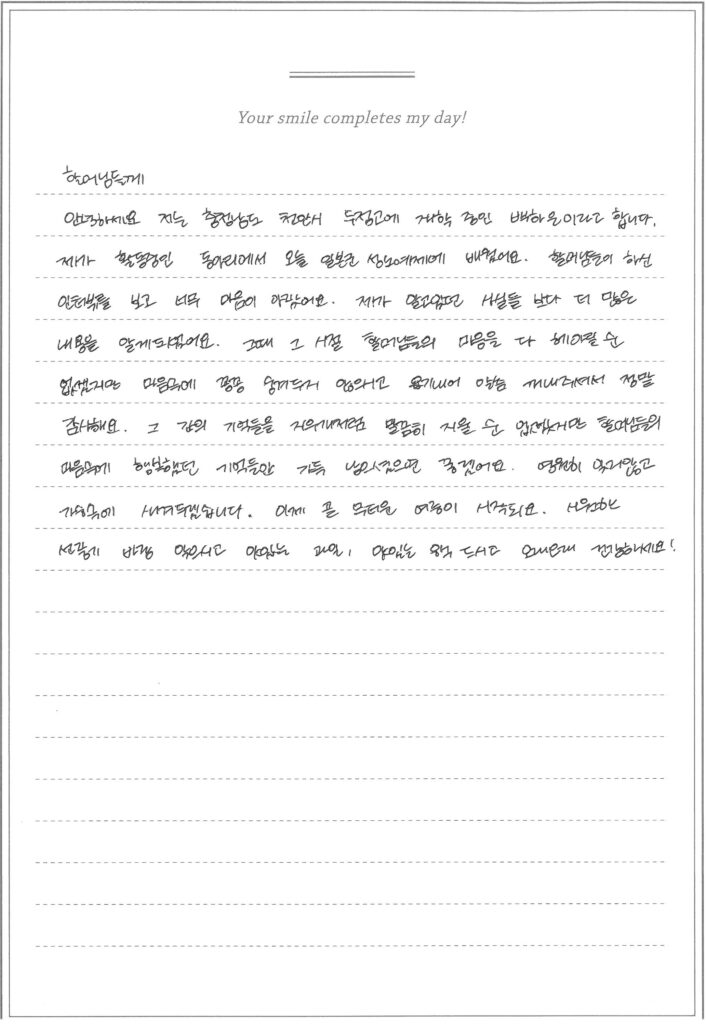 Your smile completes my day!
할머님들께
안녕하세요 저는 충청남도 천안시 두정고에 재학 중인 백하은이라고 합니다.
제가 활동중인 동아리에서 오늘 일본군 성노예제에 배웠어요. 할머님들이 하신
인터뷰를 보고 너무 마음이 아팠어요. 제가 알고있던 사실들 보다 더 많은
내용을 알게되었어요. 그때 그 시절 할머님들의 마음을 다 헤아릴 순
없겠지만 마음속에 꽁꽁 숨겨두지 않으시고 용기내어 이야기 꺼내주셔서 정말
감사해요. 그 강의 기억들을 지우개처럼 말끔히 지울 순 없겠지만 할머님들의
마음속에 행복했던 기억들만 가득 남으셨으면 좋겠어요. 영원히 잊지않고
가슴속에 새겨두겠습니다. 이제 곧 무더운 여름이 시작되요. 시원한
선풍기 바람 맞으시고 맛있는 과일, 맛있는 음식 드시고 오래오래 건강하세요!